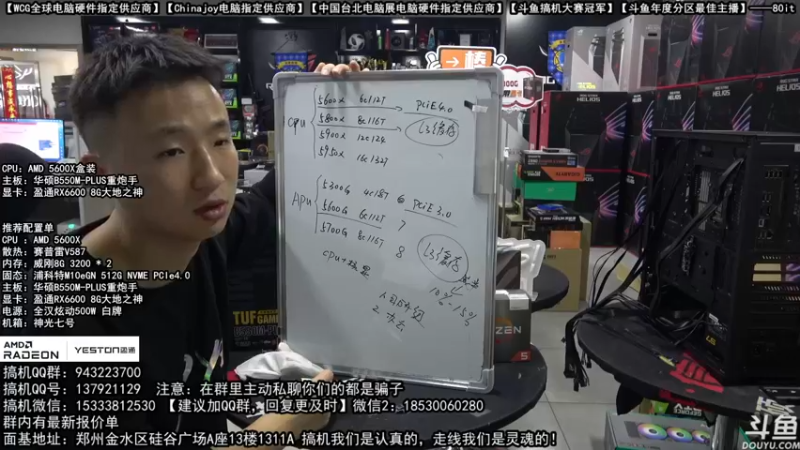 【WCG全球电脑硬件指定供应商】【Chinajoy电脑指定供应商】【中国台北电脑展电脑硬件指定供应商】【斗鱼搞机大赛冠军】【斗鱼年度分区最佳主播】——80it
CPU
5600X 6C112T → PCiE 4.0
5800X 8C116T → L3缓存
5900X
5950X 16C132T
APU
5300G 4C18T 6 PCiE 3.0
5600G 6C112T 7
5700G 8C116T 8
L3缓存
CPU+核显
CPU：AMD 5600X盒装
主板：华硕B550M-PLUS重炮手
显卡：盈通RX6600 8G大地之神
推荐配置单
CPU ：AMD 5600X
散热：赛普雷V587
内存：威刚8G 3200 * 2
固态：浦科特M10eGN 512G NVME PCIe4.0
主板：华硕B550M-PLUS重炮手
显卡：盈通RX6600 8G大地之神
电源：全汉炫动500W 白牌
机箱：神光七号
TUF GAMING
RYZEN
5
HELIOS
HELIOS
AMD
RADEON
YESTON盈通
搞机QQ群：943223700
搞机QQ号：137921129 注意：在群里主动私聊你们的都是骗子
搞机微信：15333812530 【建议加QQ群，回复更及时】微信2：18530060280
群内有最新报价单
面基地址：郑州金水区硅谷广场A座13楼1311A 搞机我们是认真的，走线我们是灵魂的！
斗鱼
DOUYU.COM